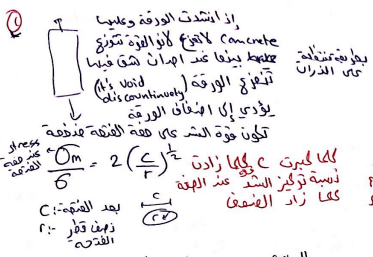 ①
إذا انشدت الورقة وعليها
Concrete لا تتمزع لأنو القوة تتوزع
بطريقة منتظمة
على الذرات
بينما عند احداث شق فيها
تتمزع الورقة (it's void
discountinuety)
يؤدي إلى اضعاف الورقة
تكون قوة الشد على حفة الفتحة ضخمة
stress
عند حفة
الفتحة
σm/σ = 2 (c/r)^1/2
كلما كبرت c كلما زادت
نسبة تركيز الشد عند الحفة
كلما زاد الضعف
c
C:- بعد الفتحة
2r
r:- نصف قطر
الفتحة